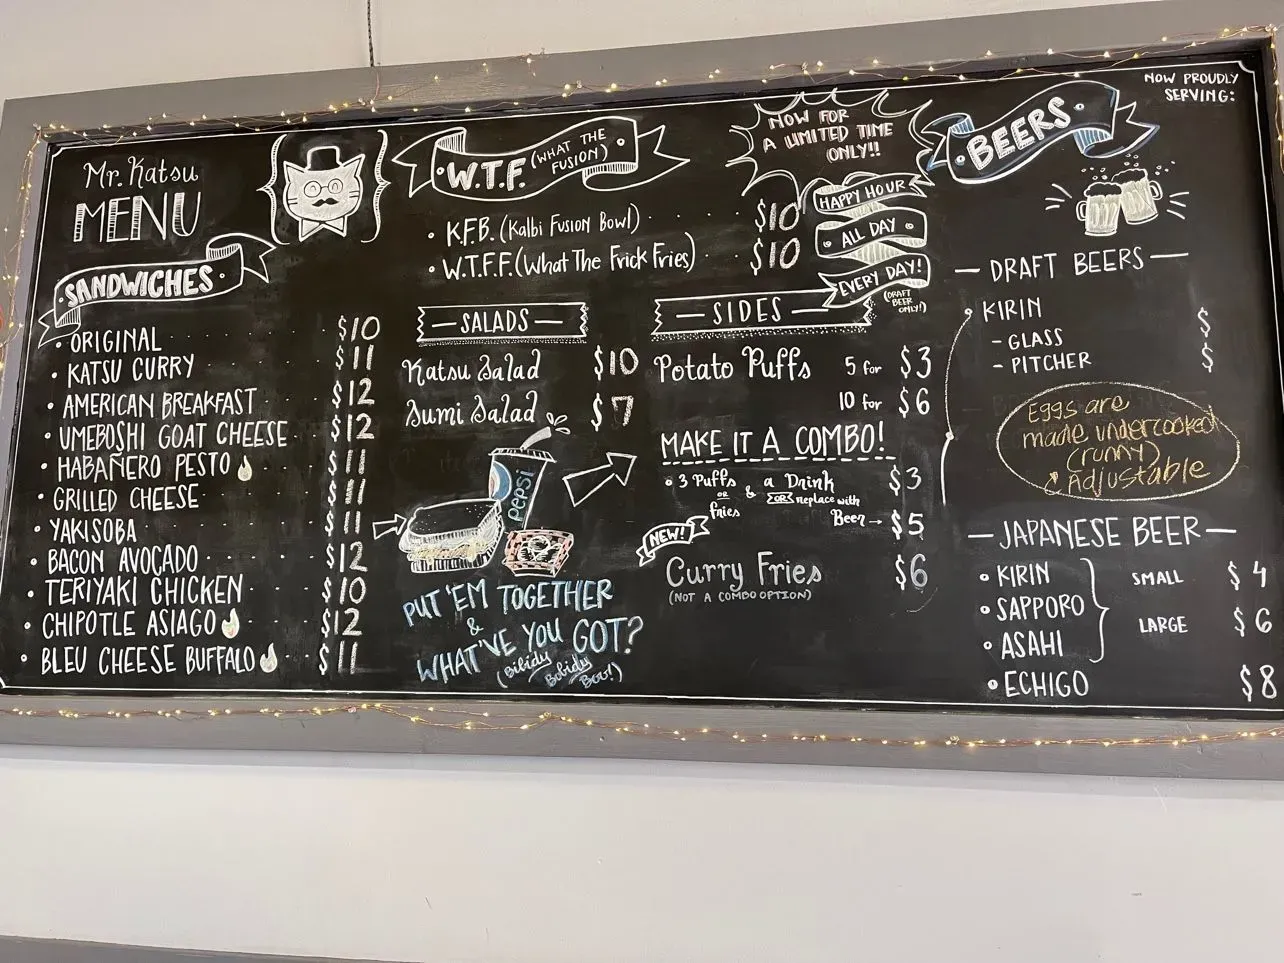 Mr. Katsu
MENU
SANDWICHES
• ORIGINAL $10
• KATSU CURRY $11
• AMERICAN BREAKFAST $12
• UMEBOSHI GOAT CHEESE $12
• HABAÑERO PESTO $11
• GRILLED CHEESE $11
• YAKISOBA $11
• BACON AVOCADO $12
• TERIYAKI CHICKEN $10
• CHIPOTLE ASIAGO $12
• BLEU CHEESE BUFFALO $11
W.T.F. (WHAT THE FUSION)
• K.F.B. (Kalbi Fusion Bowl) $10
• W.T.F.F. (What The Frick Fries) $10
— SALADS —
Katsu Salad $10
Sumi Salad $7
pepsi
PUT 'EM TOGETHER
&
WHAT'VE YOU GOT?
(Bibidy Bobidy Boo!)
NOW FOR
A LIMITED TIME
ONLY!!
HAPPY HOUR
ALL DAY
EVERY DAY!
(DRAFT BEER ONLY!)
— SIDES —
Potato Puffs 5 for $3
10 for $6
MAKE IT A COMBO!
• 3 Puffs or fries & a Drink $3
OR replace with
Beer→ $5
NEW!
Curry Fries $6
(NOT A COMBO OPTION)
BEERS
NOW PROUDLY
SERVING:
— DRAFT BEERS —
• KIRIN
- GLASS $
- PITCHER $
Eggs are
made undercooked
(runny)
Adjustable
— JAPANESE BEER —
• KIRIN
• SAPPORO
• ASAHI
SMALL $4
LARGE $6
• ECHIGO $8